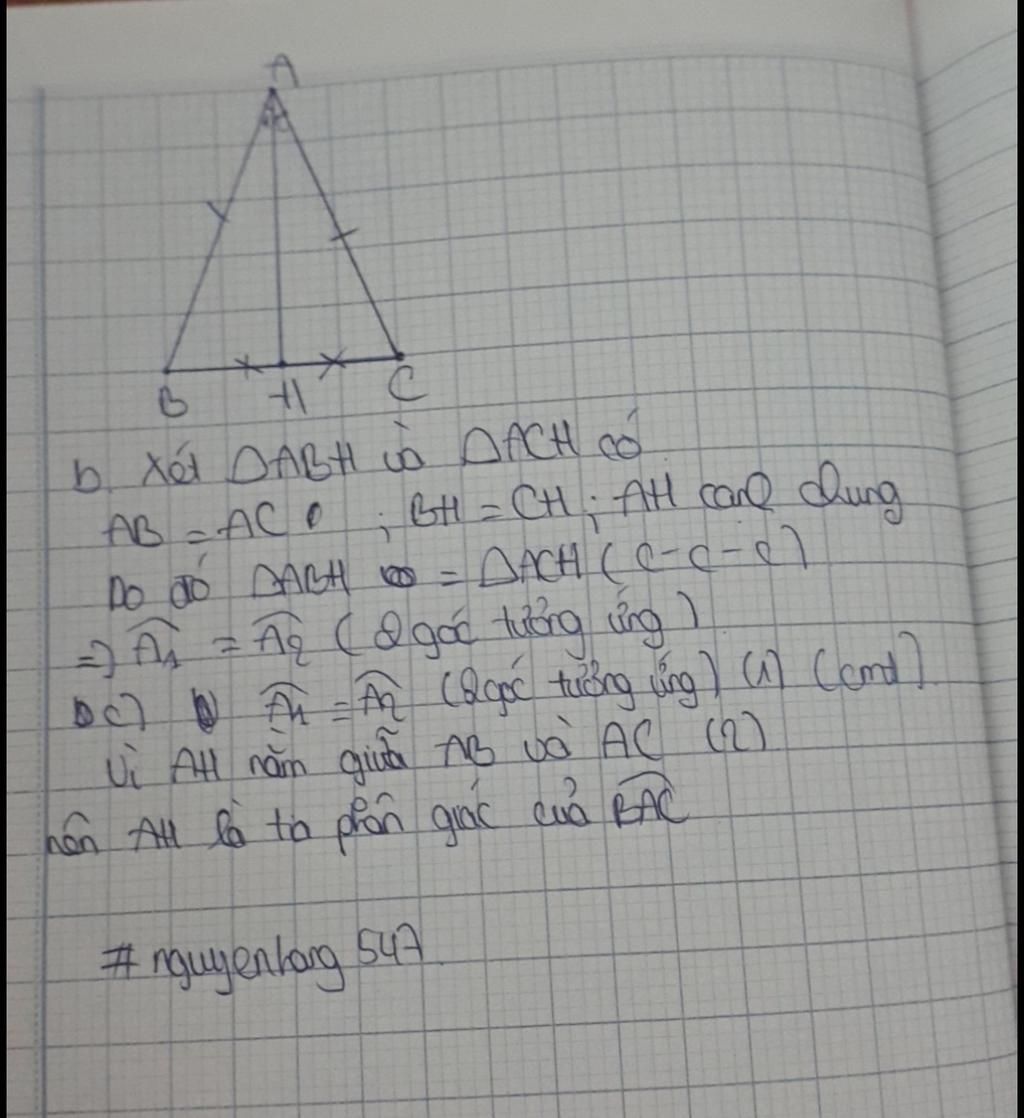 A
B H C
b. Xét △ABH và △ACH có
AB = AC ; BH = CH ; AH cạnh chung
Do đó △ABH = △ACH (c-c-c)
=> Â1 = Â2 (2 góc tương ứng)
c) Â1 = Â2 (2 góc tương ứng) (1) (cmt)
Vì AH nằm giữa AB và AC (2)
nên AH là tia phân giác của BAC
# nguyenhang 547